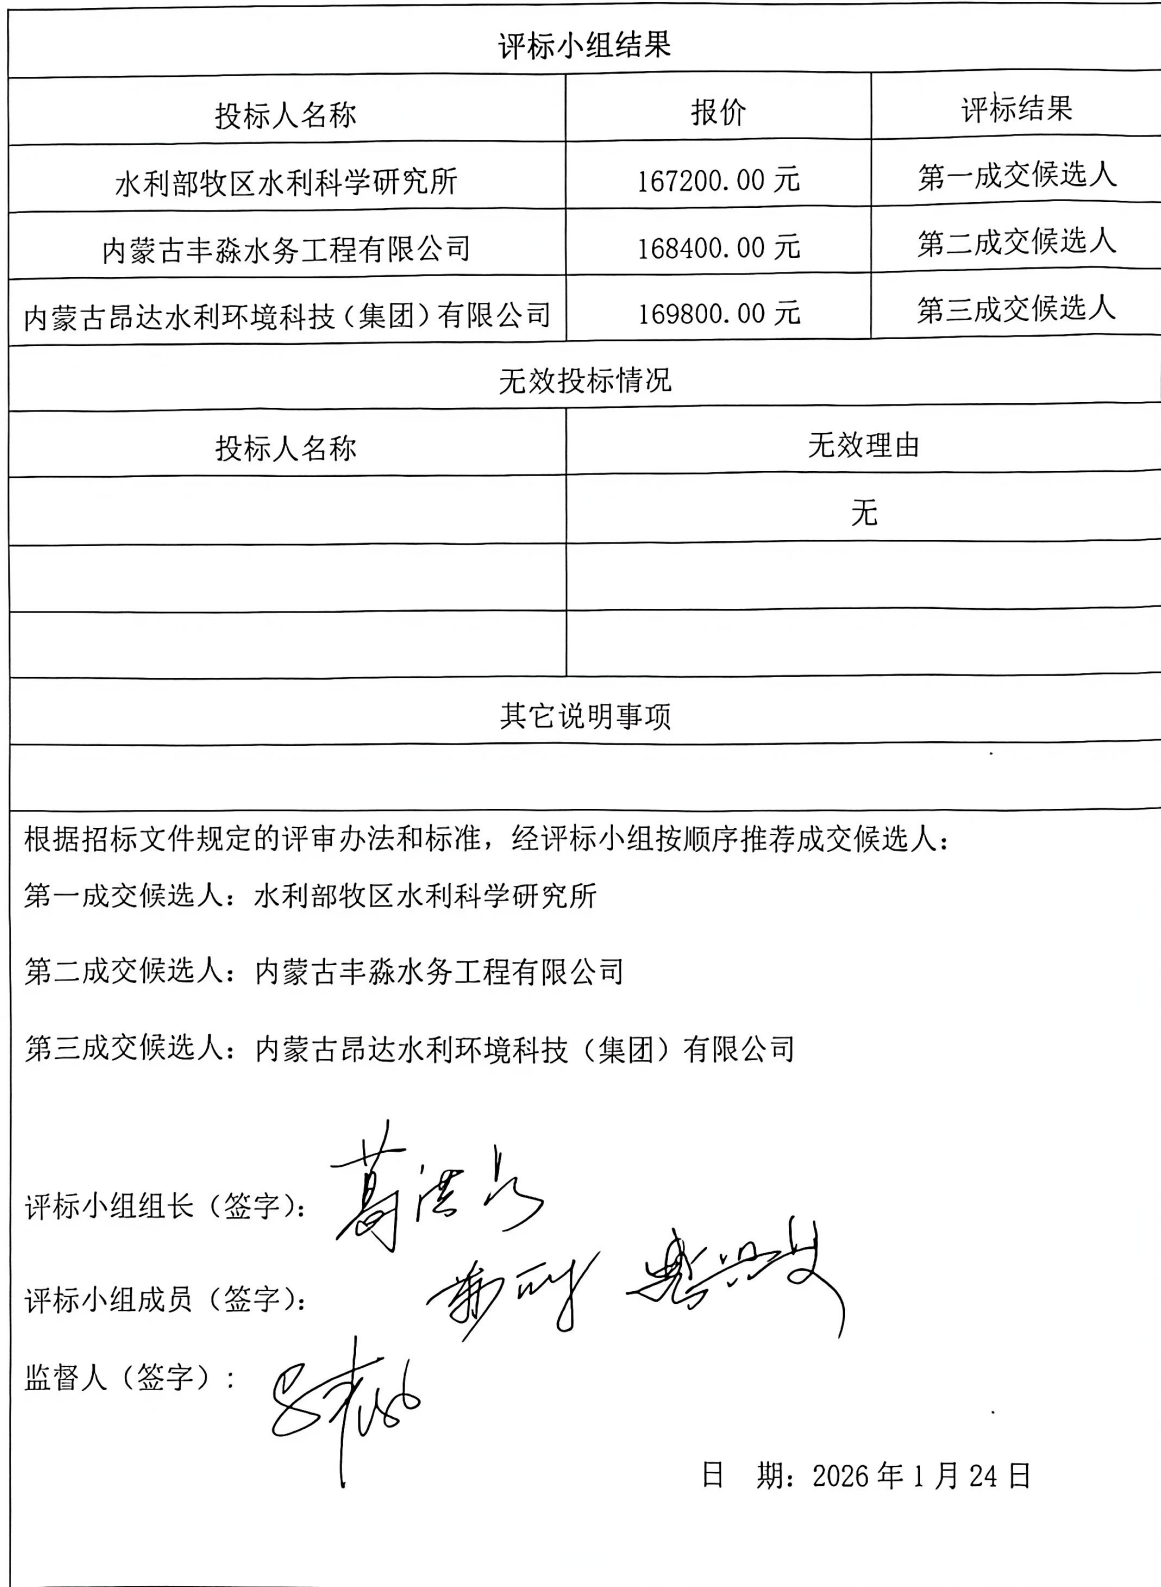 评标小组结果
投标人名称 报价 评标结果
水利部牧区水利科学研究所 167200.00 元 第一成交候选人
内蒙古丰淼水务工程有限公司 168400.00 元 第二成交候选人
内蒙古昂达水利环境科技（集团）有限公司 169800.00 元 第三成交候选人
无效投标情况
投标人名称 无效理由
无
其它说明事项
根据招标文件规定的评审办法和标准，经评标小组按顺序推荐成交候选人：
第一成交候选人：水利部牧区水利科学研究所
第二成交候选人：内蒙古丰淼水务工程有限公司
第三成交候选人：内蒙古昂达水利环境科技（集团）有限公司
评标小组组长（签字）：
评标小组成员（签字）：
监督人（签字）：
日 期：2026 年 1 月 24 日